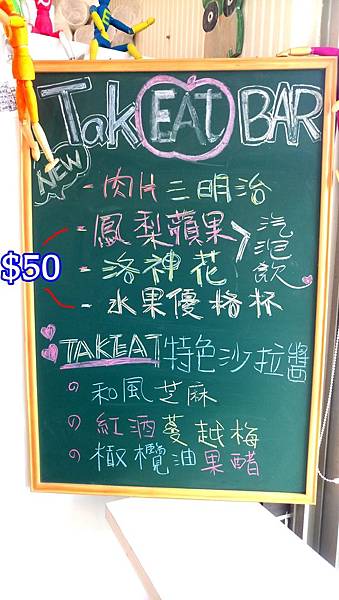 TakEAT BAR
NEW
- 肉片三明治
- 鳳梨蘋果
- 洛神花
汽泡飲
- 水果優格杯
$50
TAKEAT特色沙拉醬
の和風芝麻
の紅酒蔓越梅
の橄欖油果醋